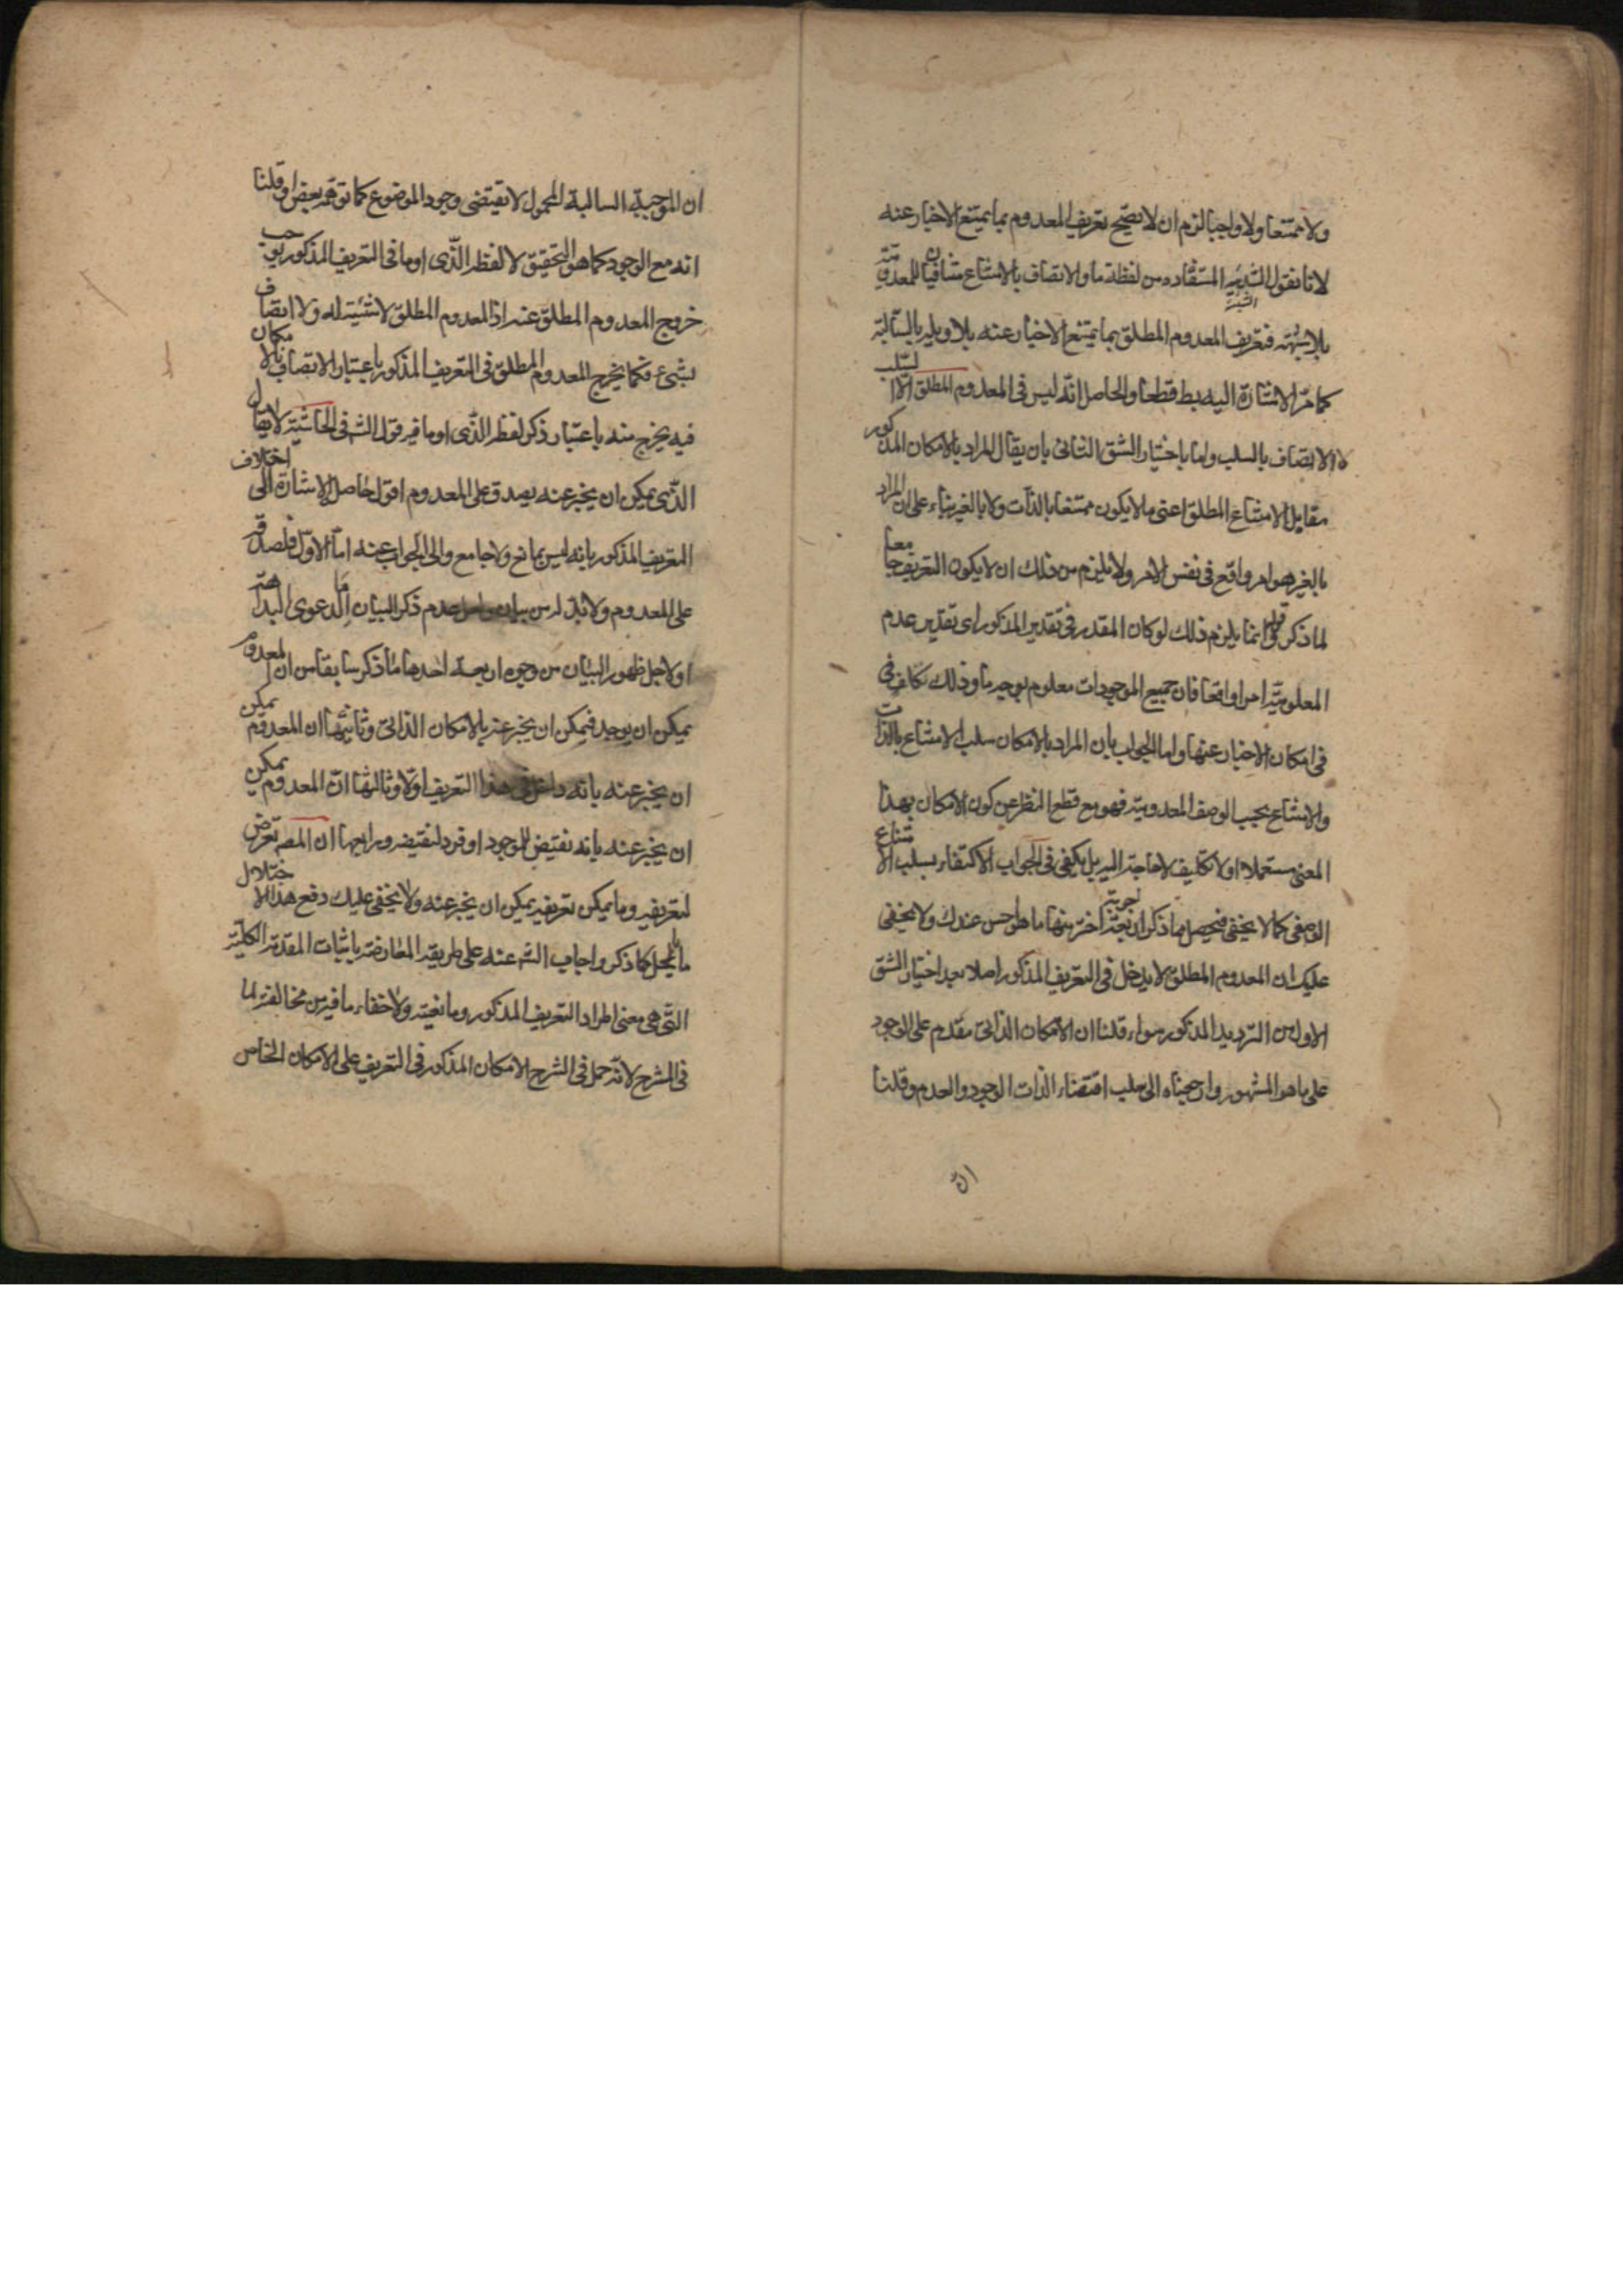 ولا ممتنعا ولا واجبا لزم ان لا يصح تعريف المعدوم بما يمتنع الاخبار عنه
لانا نقول الشيئية المستفاده من لفظة ما والاتصاف بالامتناع منافيان للمعدومية
بلا شبهة فتعريف المعدوم المطلق بما يمتنع الاخبار عنه بلا تاويله بالسالبة
كما مر الاشارة اليه بط قطعا والحاصل انه ليس في المعدوم المطلق الا السلب
لا الاتصاف بالسلب واما باختيار الشق الثاني بان يقال المراد بالامكان المذكور
مقابل الامتناع المطلق اعني ما لا يكون ممتنعا بالذات ولا بالغير بناء على ان المراد
بالغير هو امر واقع في نفس الامر ولا يلزم من ذلك ان لا يكون التعريف جامعا
لما ذكر قوله انما يلزم ذلك لو كان المقدر في تقدير المذكور اي تقدير عدم
المعلومية امرا واقعا فان جميع الموجودات معلوم بوجه ما وذلك كاف في
في امكان الاخبار عنها واما الجواب بان المراد بالامكان سلب الامتناع بالذات
والامتناع بحسب الوصف المعدومية فهو مع قطع النظر عن كون الامكان بهذا
المعنى مستعملا اولا تكليف لا حاجة اليه بل يكفي في الجواب الاكتفاء بسلب الامتناع
الوصفي كما لا يخفى فيحصل مما ذكر اربعة اجوبة اختر منها ما هو احسن عندك ولا يخفى
عليك ان المعدوم المطلق لا يدخل في التعريف المذكور اصلا بعد اختيار الشق
الاول من الترديد المذكور سواء قلنا ان الامكان الذاتي مقدم على الوجود
على ما هو المشهور وارجعناه الى سلب اقتضاء الذات الوجود والعدم وقلنا
ان
ان الموجبة السالبة المحمول لا تقتضي وجود الموضوع كما توهمه بعض او قلنا
انه مع الوجود كما هو التحقيق لا لفظ الذي او ما في التعريف المذكور يوجب
خروج المعدوم المطلق عنه اذ المعدوم المطلق لا شيئية له ولا اتصاف
بشيء فكما يخرج المعدوم المطلق في التعريف المذكور باعتبار الاتصاف بالامكان
فيه يخرج منه باعتبار ذكر لفظ الذي او ما فيه قول الش في الحاشية لا يقال
الذي يمكن ان يخبر عنه يصدق على المعدوم اقول حاصل الاشارة الى اختلاف
التعريف المذكور بانه ليس بمانع ولا جامع والى الجواب عنه اما الاول فلصدقه
على المعدوم ولا بد له من بيان عدم ذكر البيان اما لدعوى البداهة
او لاجل ظهور البيان من وجوه اربعة احدها ما ذكر سابقا من ان المعدوم
يمكن ان يوجد فيمكن ان يخبر عنه بالامكان الذاتي وثانيها ان المعدوم يمكن
ان يخبر عنه بانه داخل في هذا التعريف اولا وثالثها ان المعدوم يمكن
ان يخبر عنه بانه نقيض للموجود او فرد لنقيضه ورابعها ان المصه تعرض
لتعريفه وما يمكن تعريفه يمكن ان يخبر عنه ولا يخفى عليك دفع هذا الاختلال
بالحمل كما ذكر واجاب الش عنه على طريقة المعارضة باثبات المقدمة الكلية
التي هي معنى اطراد التعريف المذكور ومانعيته ولا خفاء ما فيه من مخالفة لما
في الشرح لانه حمل في الشرح الامكان المذكور في التعريف على الامكان الخاص